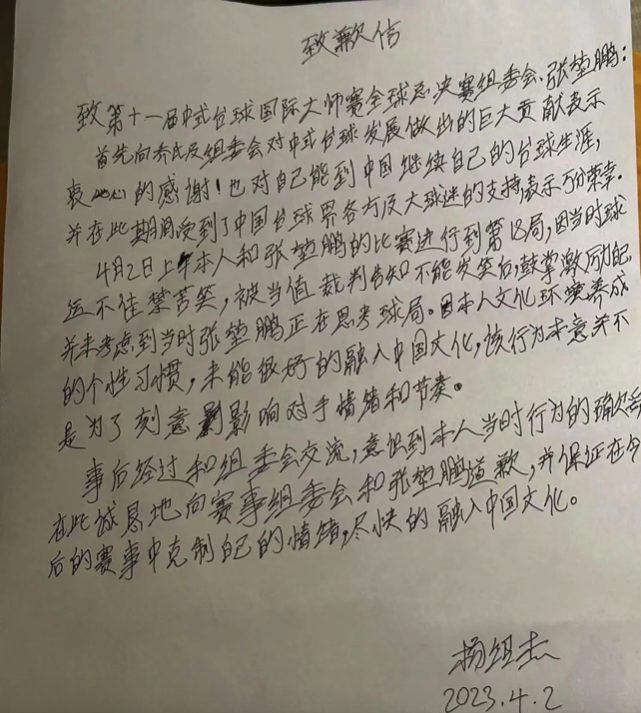 致歉信
致第十一届中式台球国际大师赛全球总决赛组委会、张堃鹏：
首先向乔氏及组委会对中式台球发展做出的巨大贡献表示
衷心的感谢！也对自己能到中国继续自己的台球生涯，
并在此期间受到了中国台球界各方及大球迷的支持表示万分荣幸。
4月2日上午本人和张堃鹏的比赛进行到第18局，因当时球
运不佳禁苦笑，被当值裁判告知不能发笑后，鼓掌激励自己，
并未考虑到当时张堃鹏正在思考球局。因本人文化环境养成
的个性习惯，未能很好的融入中国文化，该行为本意并不
是为了刻意影响对手情绪和节奏。
事后经过和组委会交流，意识到本人当时行为的确欠妥
在此诚恳地向赛事组委会和张堃鹏道歉，并保证在今
后的赛事中克制自己的情绪，尽快的融入中国文化。
杨组杰
2023.4.2